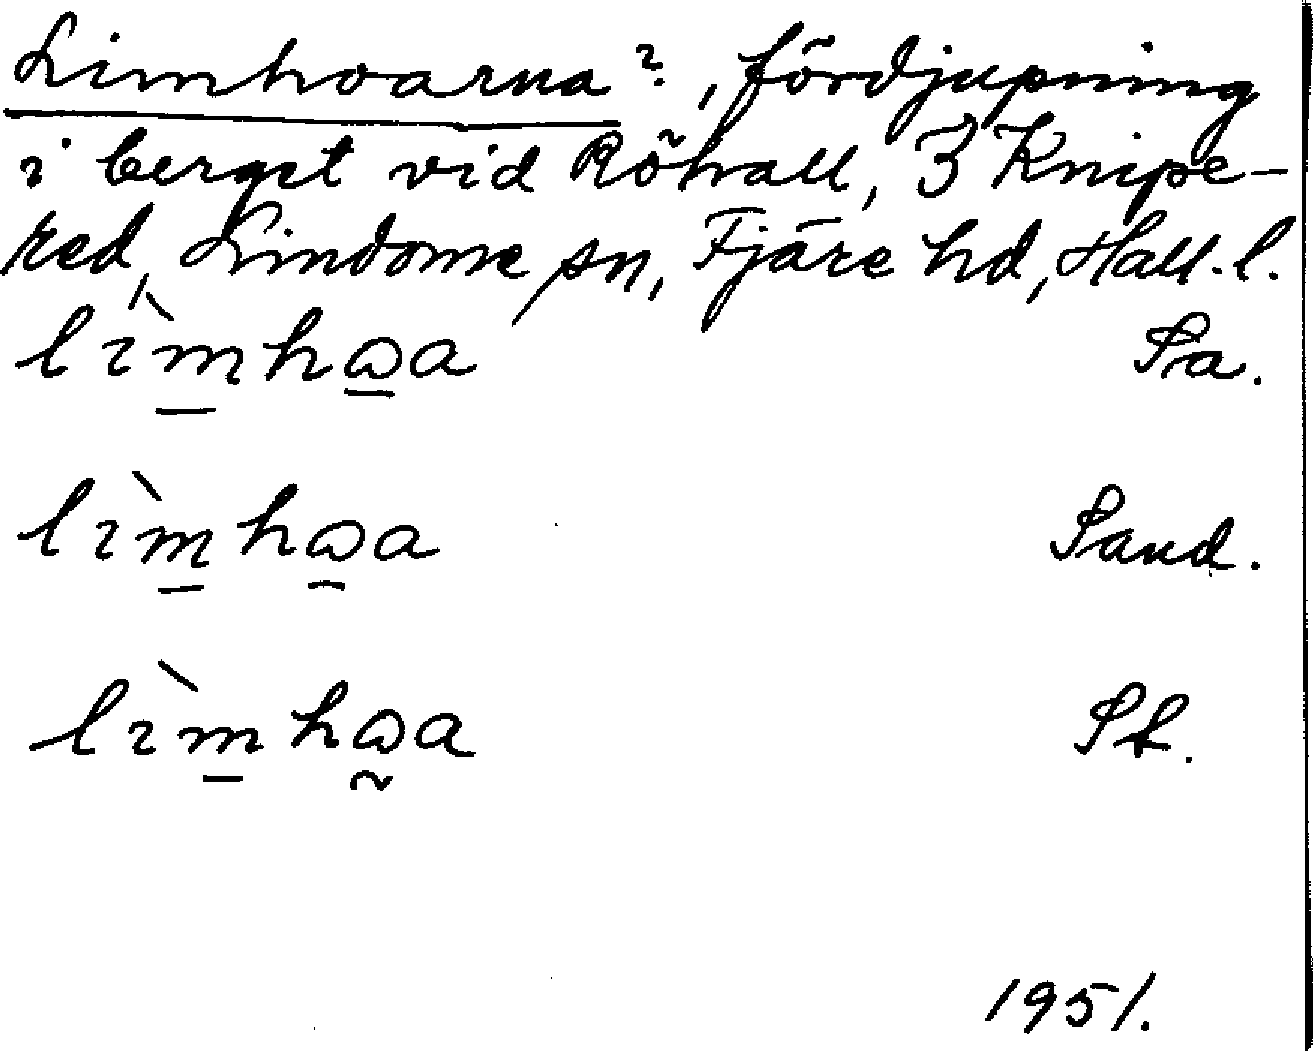 Limhoarna?, fördjupning
i berget vid Röhall, 3 Knipe-
red, Lindome sn, Fjäre hd, Hall. l.
lìm̱hω̱a Sa.
lìm̱hω̯a Sand.
lìm̱hω̰a St.
1951.